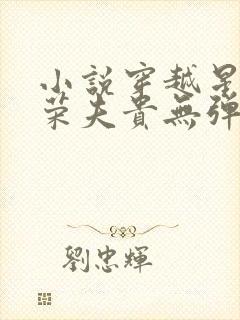 小說穿越星
荣夫貴無彈
劉忠輝